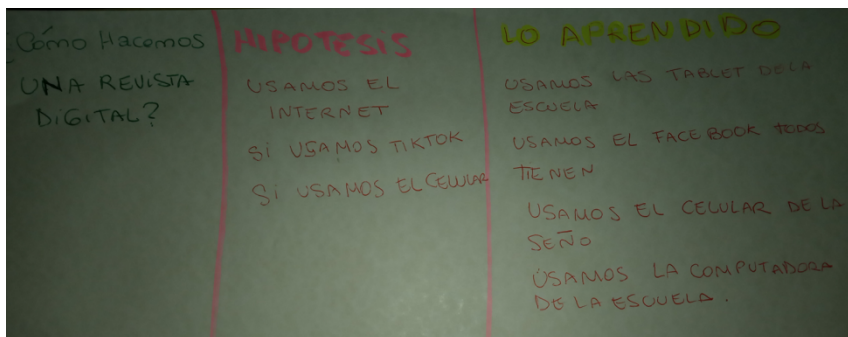 ¿Cómo Hacemos
UNA REVISTA
DIGITAL?
HIPOTESIS
USAMOS EL
INTERNET
SI USAMOS TIKTOK
SI USAMOS EL CELULAR
LO APRENDIDO
USAMOS LAS TABLET DE LA
ESCUELA
USAMOS EL FACEBOOK TODOS
TIENEN
USAMOS EL CELULAR DE LA
SEÑO
USAMOS LA COMPUTADORA
DE LA ESCUELA.